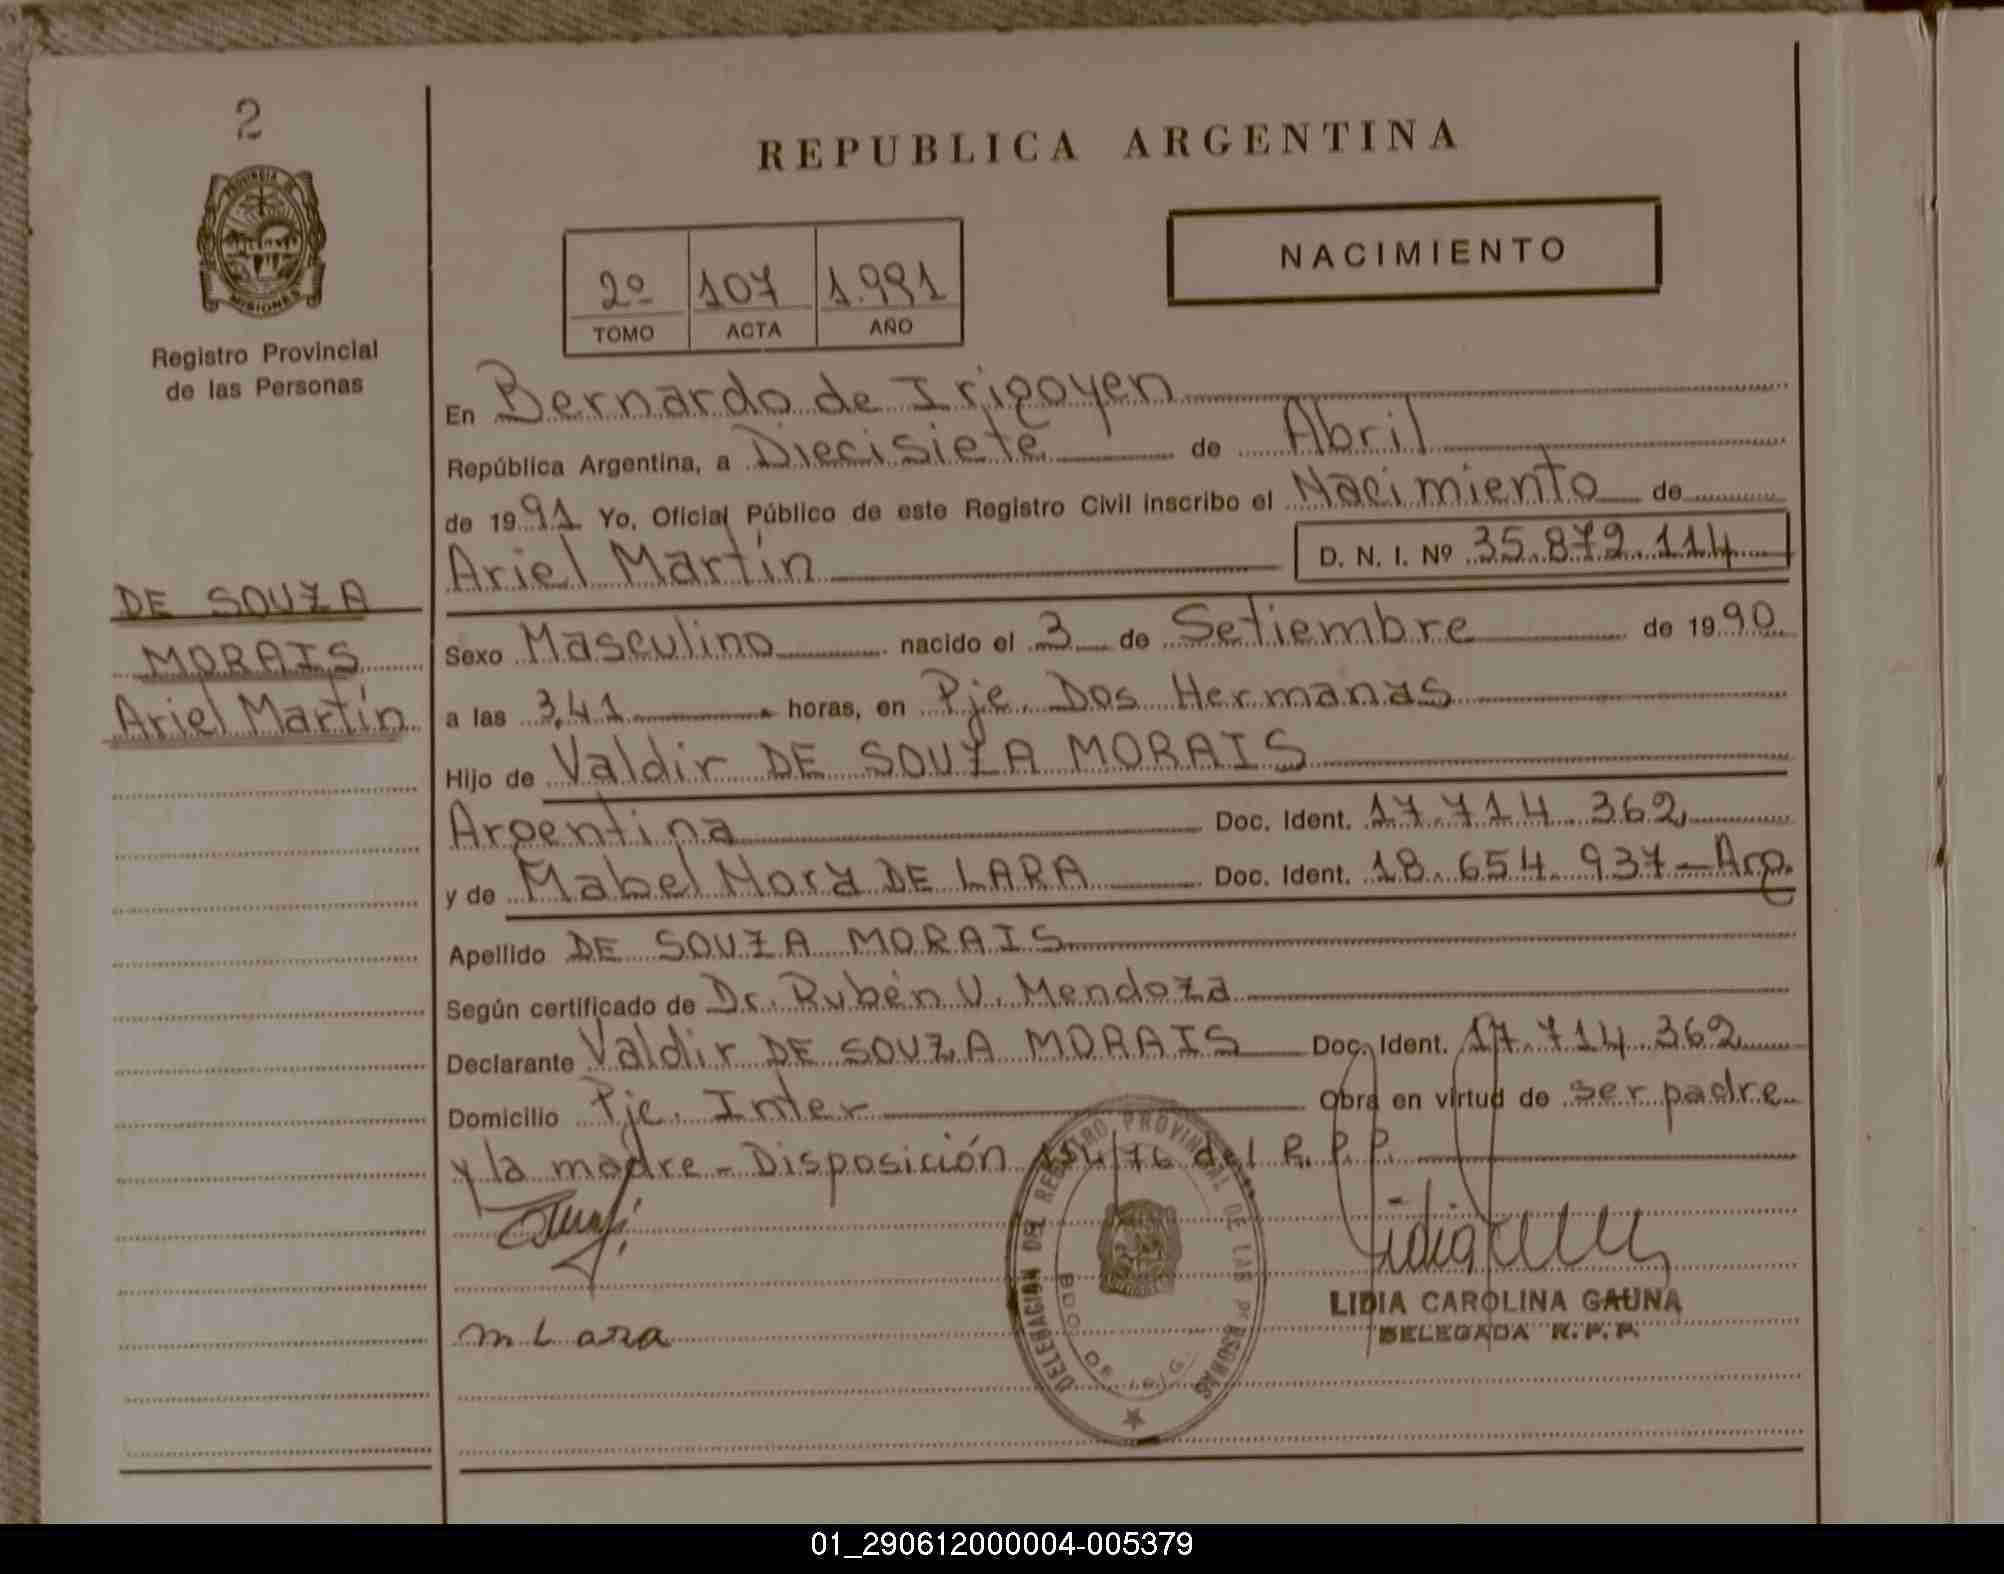 2
PROVINCIA DE
MISIONES
Registro Provincial
de las Personas
DE SOUZA
MORAIS
Ariel Martín
REPUBLICA ARGENTINA
NACIMIENTO
2º 107 1.991
TOMO ACTA AÑO
En Bernardo de Irigoyen
República Argentina, a Diecisiete de Abril
de 1991 Yo, Oficial Público de este Registro Civil inscribo el Nacimiento de
Ariel Martín D. N. I. Nº 35.872.114
Sexo Masculino nacido el 3 de Setiembre de 1990
a las 3,41 horas, en Pje. Dos Hermanas
Hijo de Valdir DE SOUZA MORAIS
Argentina Doc. Ident. 17.714.362
y de Mabel Nora DE LARA Doc. Ident. 18.654.937 - Arg.
Apellido DE SOUZA MORAIS
Según certificado de Dr. Rubén V. Mendoza
Declarante Valdir DE SOUZA MORAIS Doc. Ident. 17.714.362
Domicilio Pje. Inter Obra en virtud de ser padre
y la madre - Disposición 154/76 del R. P. P.
DELEGACION DEL REGISTRO PROVINCIAL DE LAS PERSONAS
BDO. DE IRIG.
LIDIA CAROLINA GAUNA
DELEGADA R. P. P.
m Lara
01_290612000004-005379